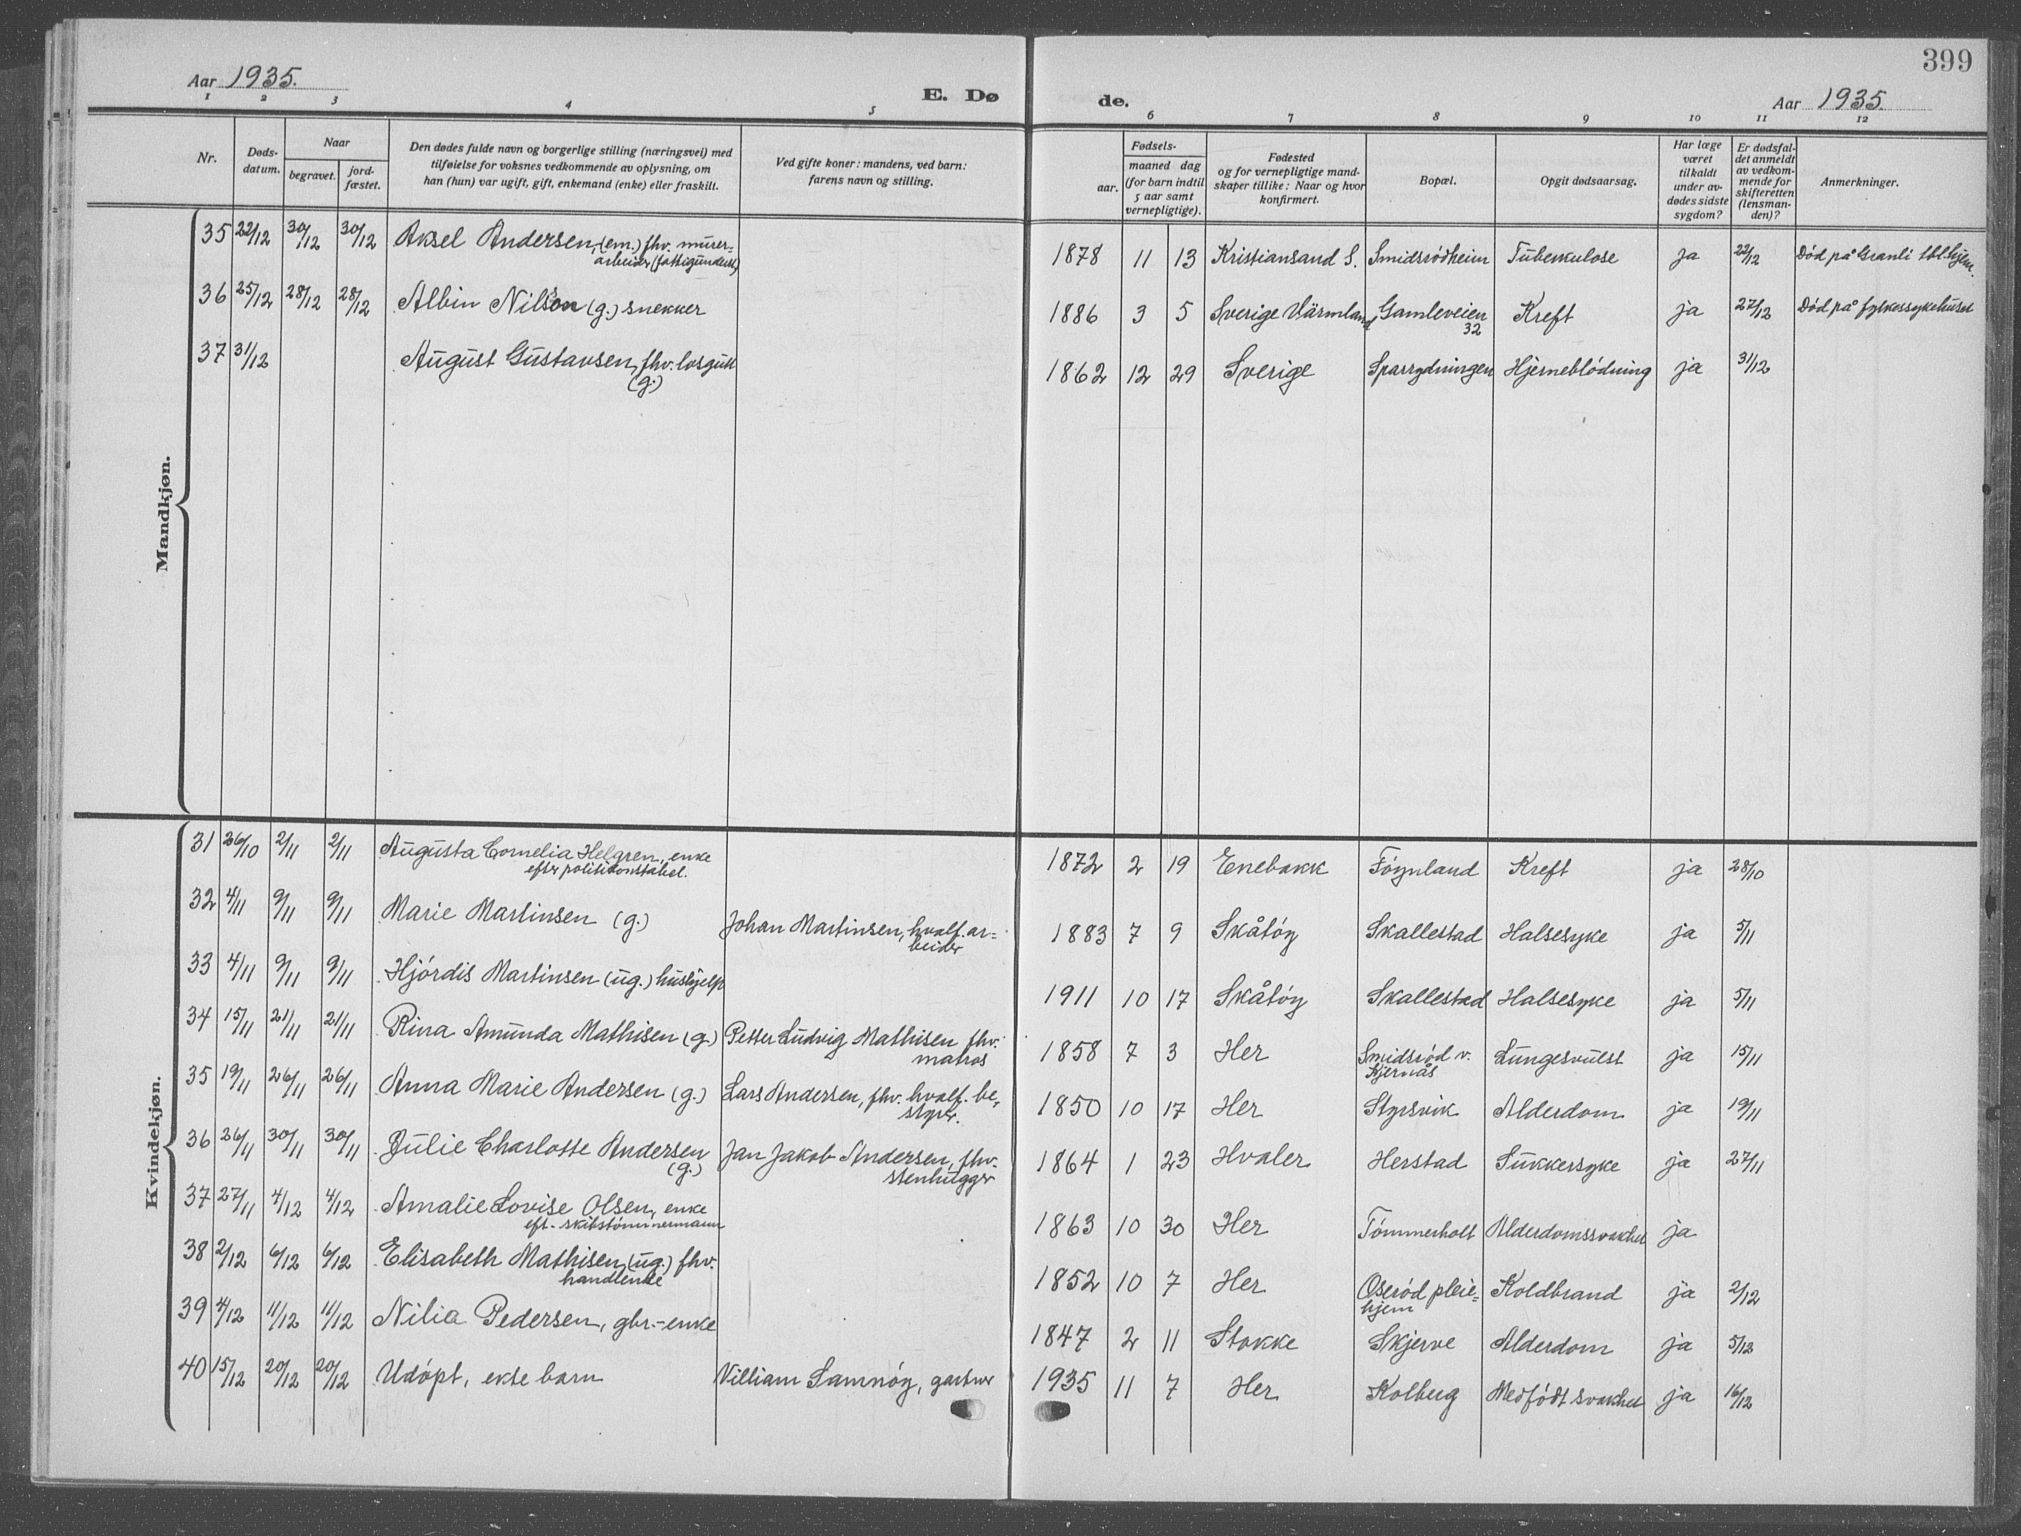 399
Aar 1935.
E. Dø de.
Aar 1935.
1 2 3 4 5 6 7 8 9 10 11 12
Nr.
Døds-
datum.
Naar
begravet.
jord-
fæstet.
Den dødes fulde navn og borgerlige stilling (næringsvei) med
tilføielse for voksnes vedkommende av oplysning, om
han (hun) var ugift, gift, enkemand (enke) eller fraskilt.
Ved gifte koner: mandens, ved barn:
farens navn og stilling.
Fødsels-
aar.
maaned dag
(for barn indtil
5 aar samt
vernepligtige).
Fødested
og for vernepligtige mand-
skaper tillike: Naar og hvor
konfirmert.
Bopæl.
Opgit dødsaarsag.
Har læge
været
tilkaldt
under av-
dødes sidste
sygdom?
Er dødsfal-
det anmeldt
av vedkom-
mende for
skifteretten
(lensman-
den)?
Anmerkninger.
Mandkjøn.
35 22/12 30/12 30/12 Aksel Andersen, (em.) fhv. murer- 1878 11 13 Kristiansand S. Smidsrødheim Tuberkulose ja 22/12 Død på Granli tbl.hjem.
arbeider (fattigunderst.)
36 25/12 28/12 28/12 Albin Nilson (g.) snekker 1886 3 5 Sverige Värmland Gamleveien Kreft ja 27/12 Død på fylkessykehuset
32
37 31/12 August Gustavsen, fhv. losgutt 1862 12 29 Sverige Sparrydningen Hjerneblødning ja 31/12
(g.)
Kvindekjøn.
31 26/10 2/11 2/11 Augusta Cornelia Helgren, enke 1872 2 19 Enebakk Føynland Kreft ja 28/10
efter politikonstabel.
32 4/11 9/11 9/11 Marie Martinsen (g.) Johan Martinsen, hvalf. ar- 1883 7 9 Skåtøy Skallestad Halsesyke ja 5/11
beider
33 4/11 9/11 9/11 Hjørdis Martinsen (ug.) hushjelp 1911 10 17 Skåtøy Skallestad Halsesyke ja 5/11
34 15/11 21/11 21/11 Rina Amunda Mathisen (g.) Petter Ludvig Mathisen fhv. 1858 7 3 Her Smidsrød v. Lungesvulst ja 15/11
matros Kjernås
35 19/11 26/11 26/11 Anna Marie Andersen (g.) Lars Andersen, fhv. hvalf. be- 1850 10 17 Her Styrsvik Alderdom ja 19/11
styrer.
36 26/11 30/11 30/11 Julie Charlotte Andersen Jan Jakob Andersen, fhv. 1864 1 23 Hvaler Herstad Sukkersyke ja 27/11
(g.) stenhugger
37 27/11 4/12 4/12 Amalie Lovise Olsen, enke 1863 10 30 Her Tømmerholt Alderdomssvakhet ja
eft. skibstømmermann
38 2/12 6/12 6/12 Elisabeth Mathisen, (ug.) fhv. 1852 10 7 Her Oserød pleie- Koldbrand ja 2/12
handlende hjem
39 4/12 11/12 11/12 Nilia Pedersen, gbr.-enke 1847 2 11 Stokke Skjerve Alderdom ja 5/12
40 15/12 20/12 20/12 Udøpt, ekte barn Villiam Samnøy, gartner 1935 11 7 Her Kolberg Medfødt svakhet ja 16/12